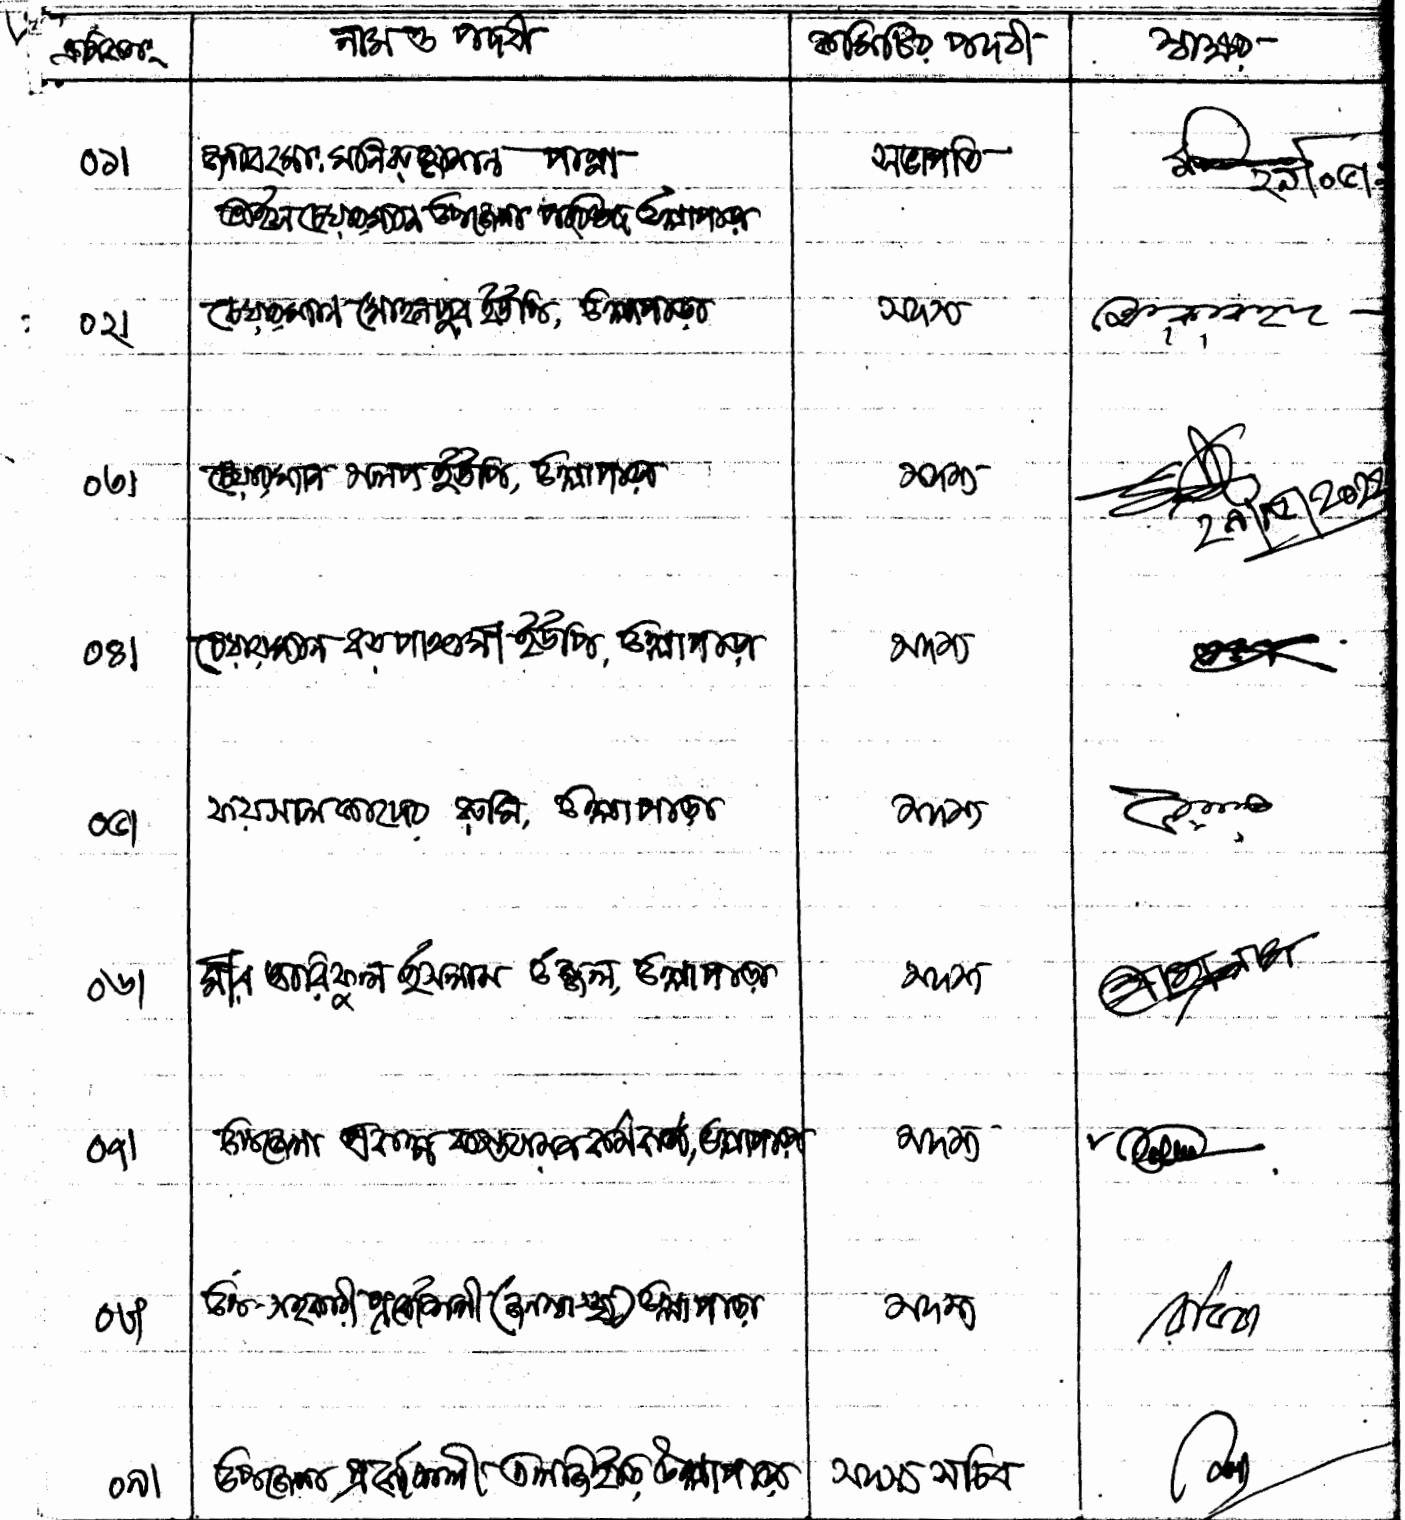 ক্রমিক নং নাম ও পদবী কমিটির পদবী স্বাক্ষর
০১। জনাব মোঃ মনিরুজ্জামান পান্না সভাপতি
ভাইস চেয়ারম্যান উপজেলা পরিষদ, উল্লাপাড়া
০২। চেয়ারম্যান মোহনপুর ইউপি, উল্লাপাড়া সদস্য
০৩। চেয়ারম্যান সলপ ইউপি, উল্লাপাড়া সদস্য
০৪। চেয়ারম্যান বড় পাঙ্গাসী ইউপি, উল্লাপাড়া সদস্য
০৫। ফয়সাল কাদের রুমি, উল্লাপাড়া সদস্য
০৬। মীর আরিফুল ইসলাম উজ্জল, উল্লাপাড়া সদস্য
০৭। উপজেলা প্রকল্প বাস্তবায়ন কর্মকর্তা, উল্লাপাড়া সদস্য
০৮। উপ-সহকারী প্রকৌশলী (জনস্বাস্থ্য) উল্লাপাড়া সদস্য
০৯। উপজেলা প্রকৌশলী এলজিইডি, উল্লাপাড়া সদস্য সচিব